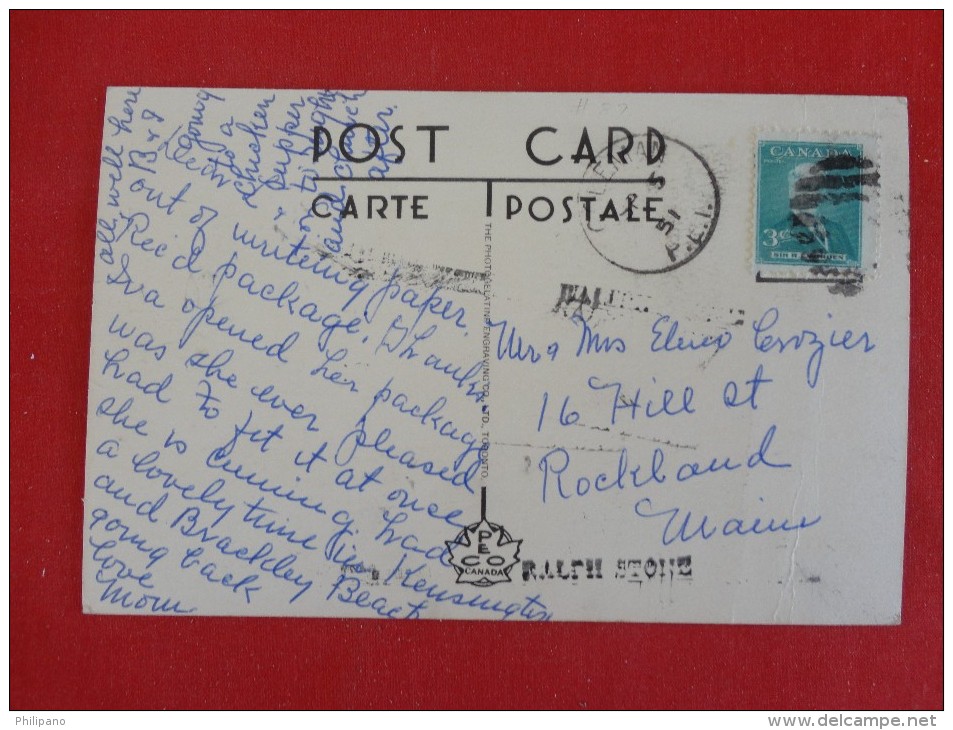 POST CARD
CARTE POSTALE
CANADA
3
P.E.I.
51
all well here
B + I
going
to a
chicken
supper
to night
and church
after.
out of writeing paper.
Rec'd package. Thanks
Iva opened her package
was she ever pleased
had to fit it at once
she is cunning. had
a lovely time in Kensington
and Brackley Beach
going back
love
Mom
Mr & Mrs Crozier
16 Hill St
Rockland
Maine
THE PHOTOGELATINE ENGRAVING CO., LTD., TORONTO.
PECO
CANADA
RALPH STONE
Philipano
www.delcampe.net